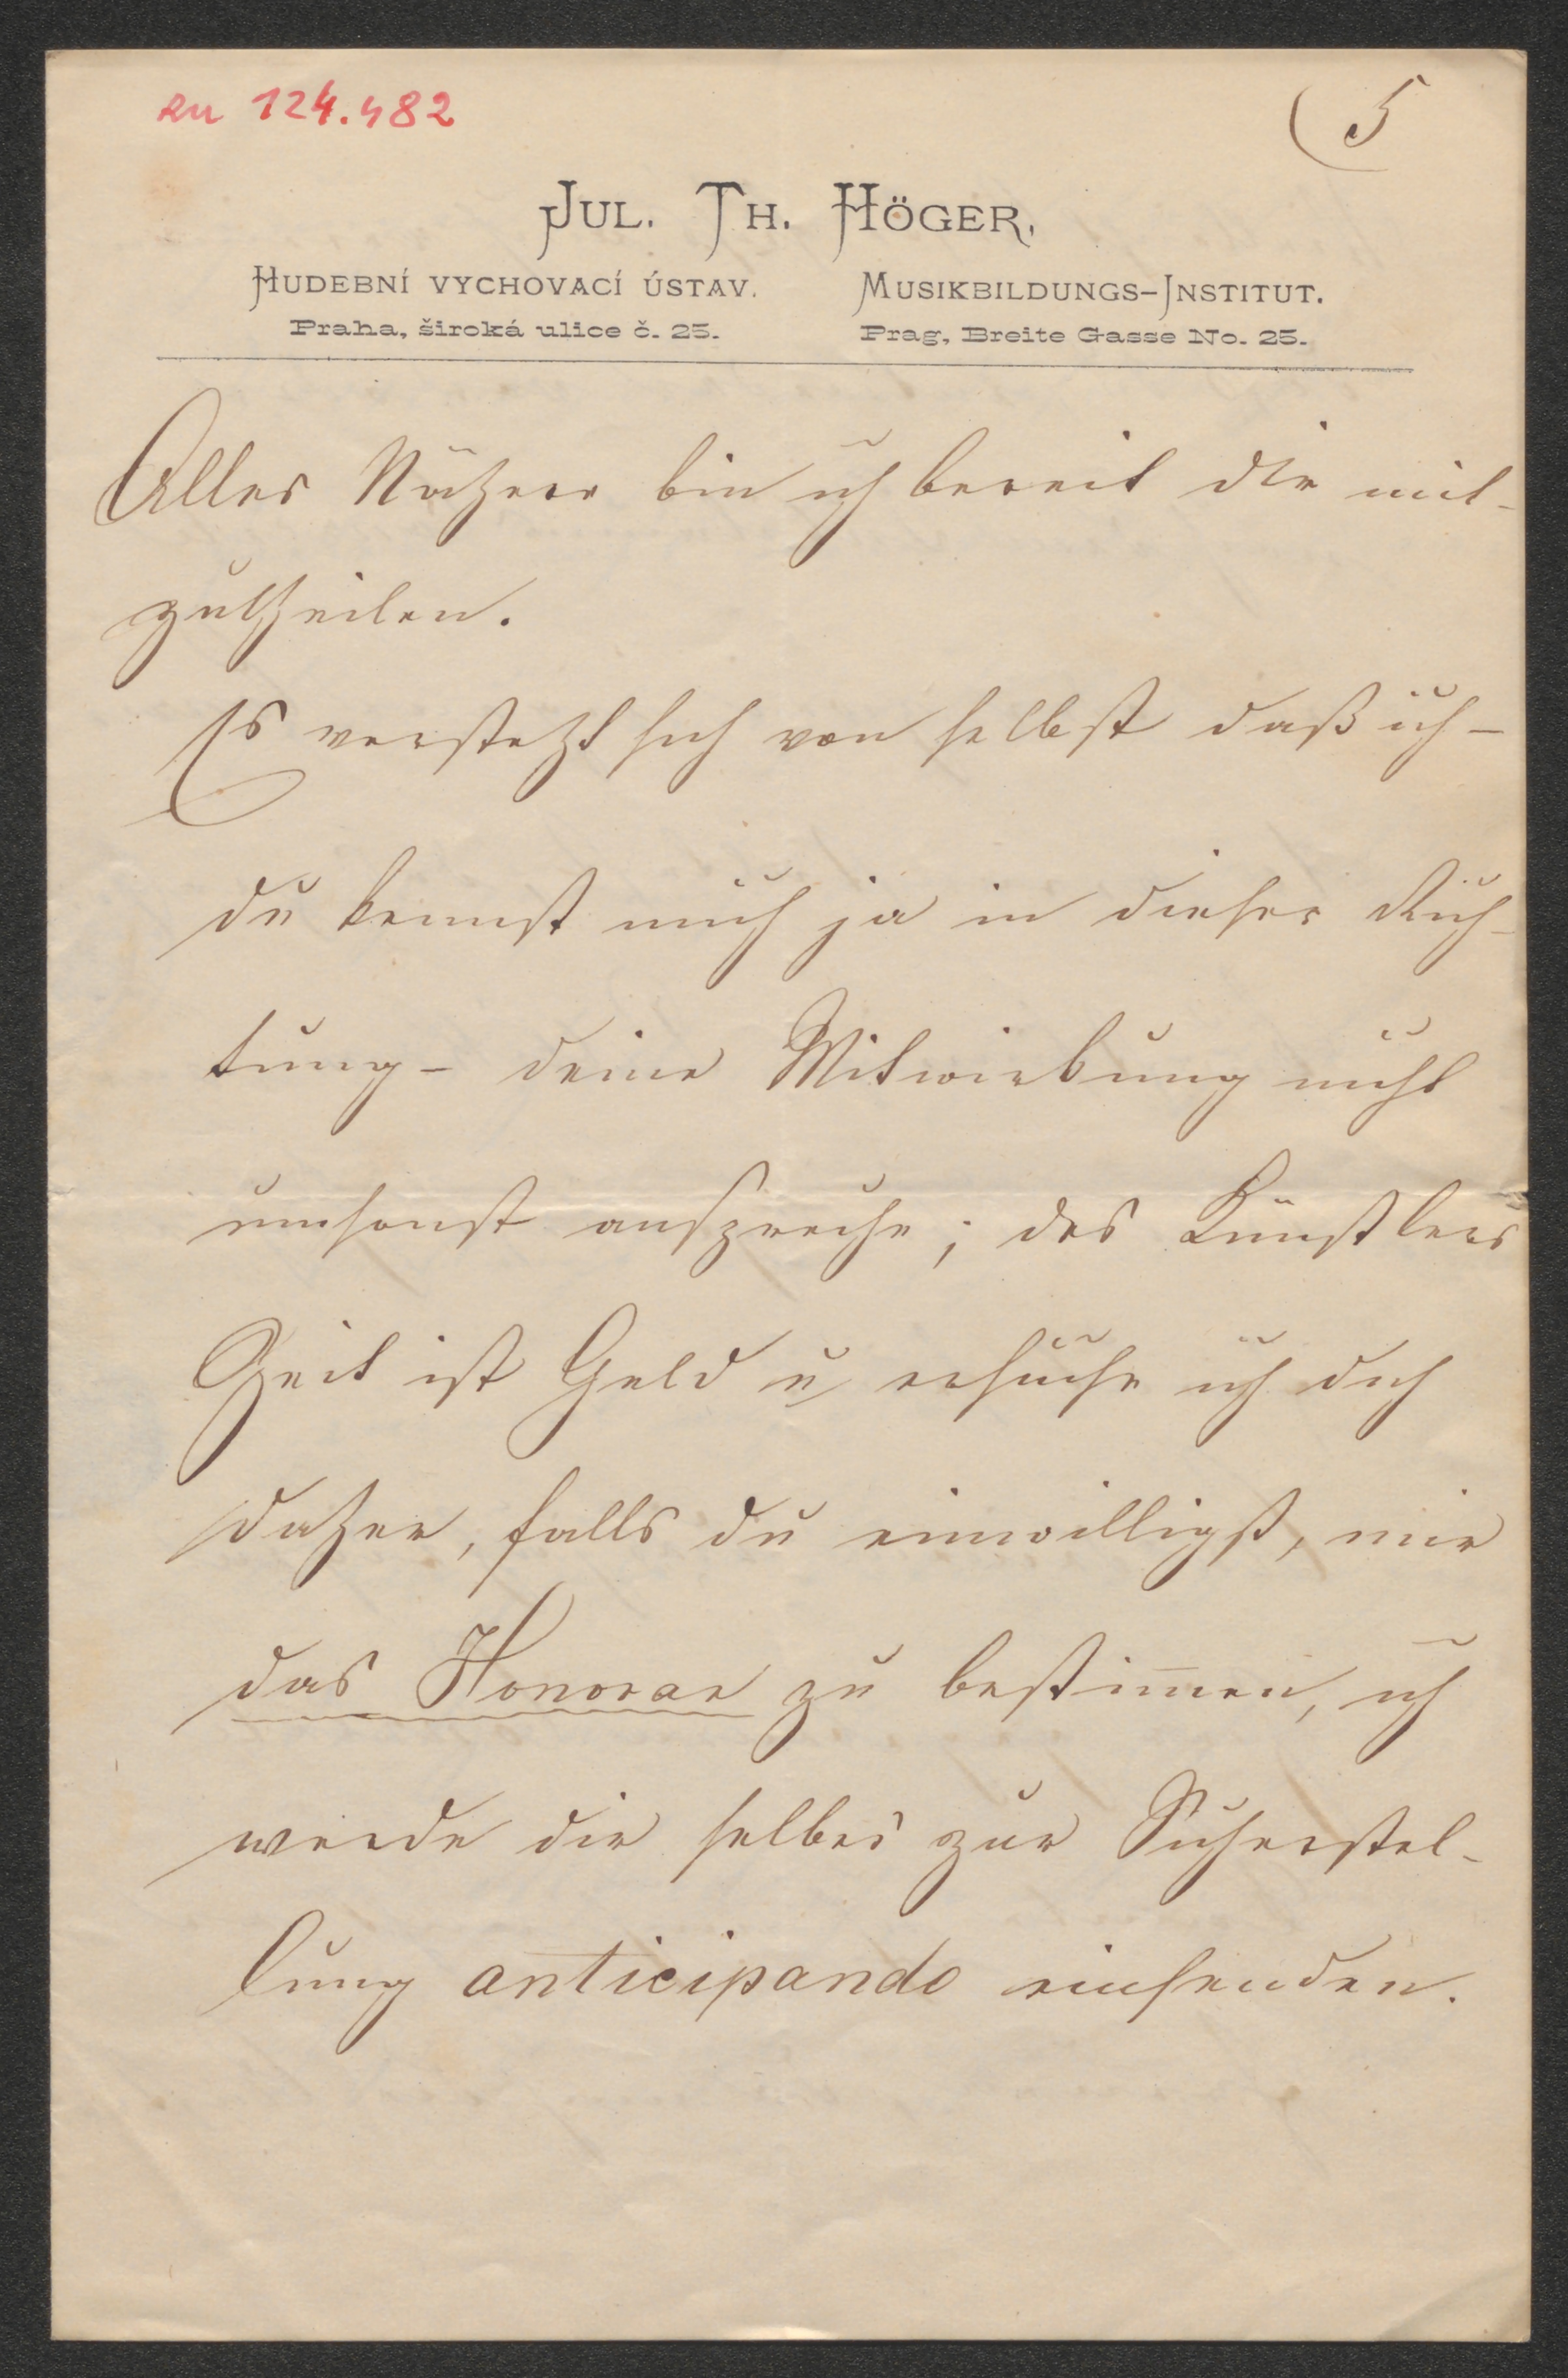 RU 124.482
5
JUL. TH. HÖGER,
HUDEBNÍ VYCHOVACÍ ÚSTAV.
Praha, široká ulice č. 25.
MUSIKBILDUNGS-INSTITUT.
Prag, Breite Gasse No. 25.
Alles Nähere bin ich bereit dir mit-
zutheilen.
Es versteht sich von selbst daß ich -
du kennst mich ja in dieser Rich-
tung - deine Mitwirkung nicht
umsonst anspreche; des Künstlers
Zeit ist Geld u ersuche ich dich
daher, falls du einwilligst, mir
das Honorar zu bestim̄en, ich
werde dir selbes zur Sicherstel-
lung anticipando einsenden.